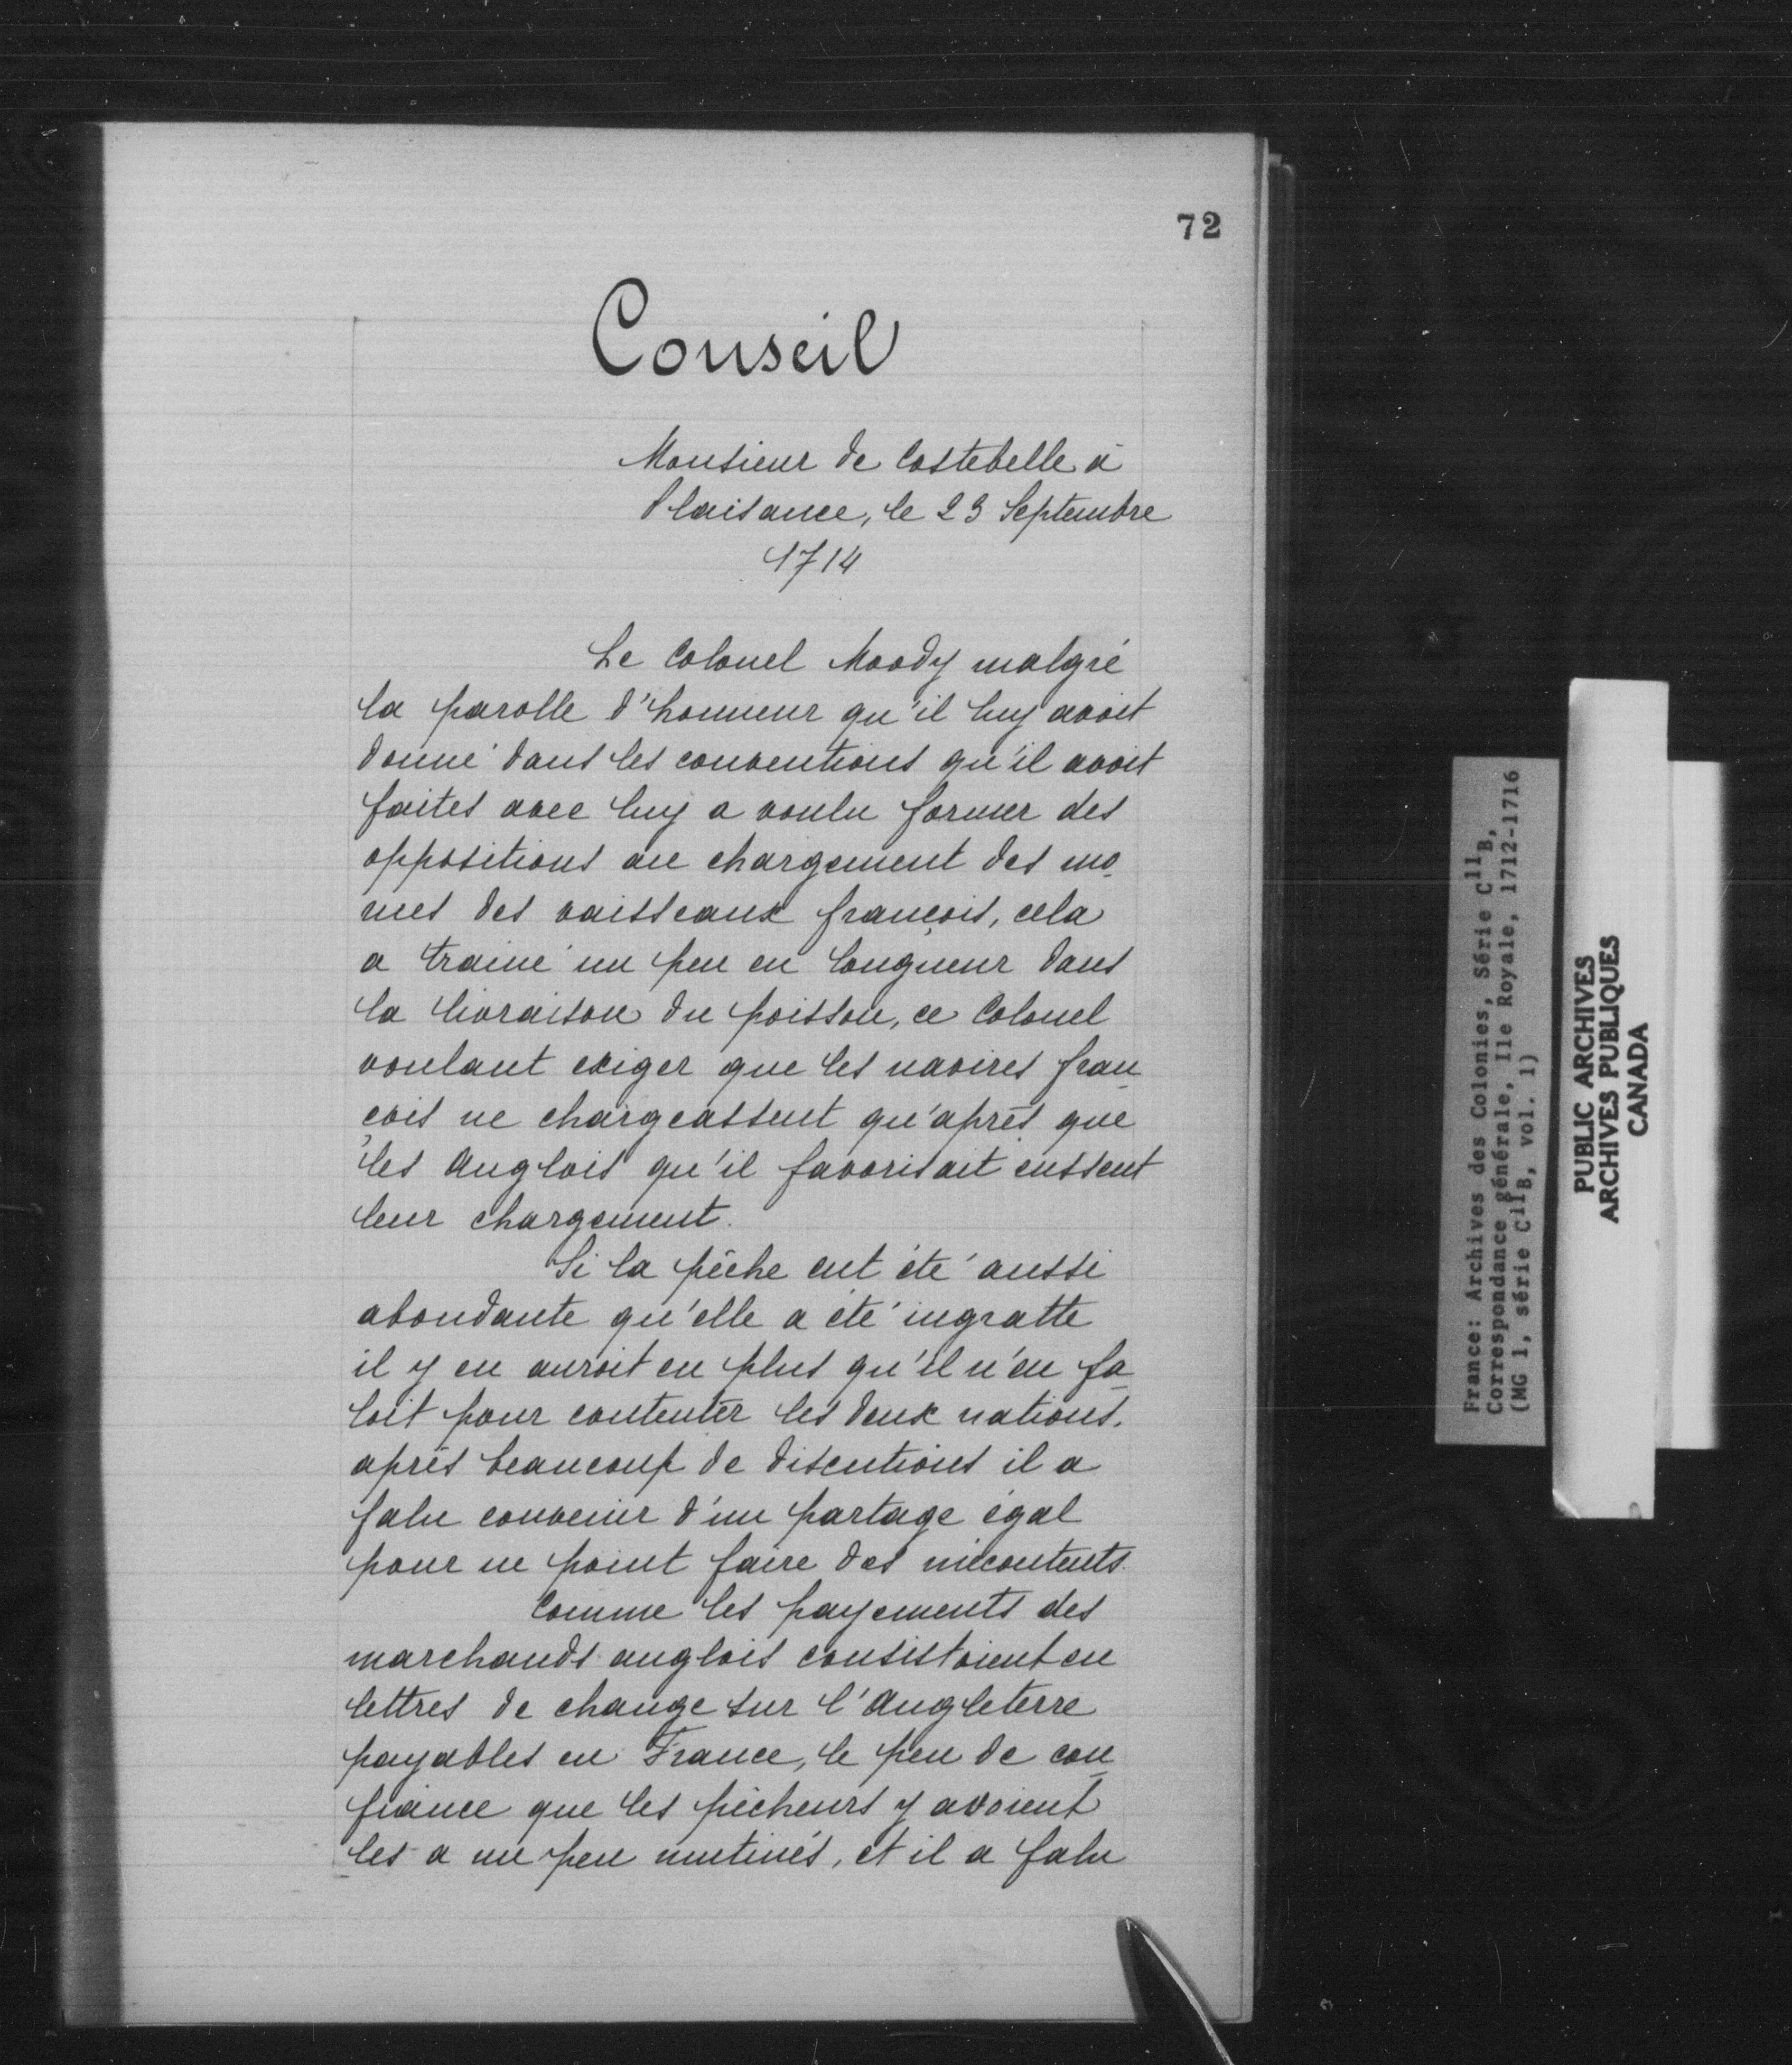 72
Conseil
Monsieur de Costebelle à
Plaisance, le 23 Septembre
1714
Le Colonel Moody malgré
la parolle d'honneur qu'il luy avoit
donné dans les conventions qu'il avoit
faites avec luy a voulu former des
oppositions au chargement des mo-
rues des vaisseaux françois, cela
a trainé un peu en longueur dans
la livraison du poisson, ce Colonel
voulant exiger que les navires fran-
çois ne chargeassent qu'après que
les Anglois qu'il favorisait eussent
leur chargement.
Si la pêche eut été aussi
abondante qu'elle a été ingratte
il y en auroit eu plus qu'il n'en fa-
loit pour contenter les deux nations.
après beaucoup de discutions il a
falu convenir d'un partage égal
pour ne point faire des mécontents.
Comme les payements des
marchands anglois consistoient en
lettres de change sur l'Angleterre
payables en France, le peu de con-
fiance que les pêcheurs y avoient
les a un peu mutinés, et il a falu
France: Archives des Colonies, Série C11B,
Correspondance générale, Ile Royale, 1712-1716
(MG 1, série C11B, vol. 1)
PUBLIC ARCHIVES
ARCHIVES PUBLIQUES
CANADA